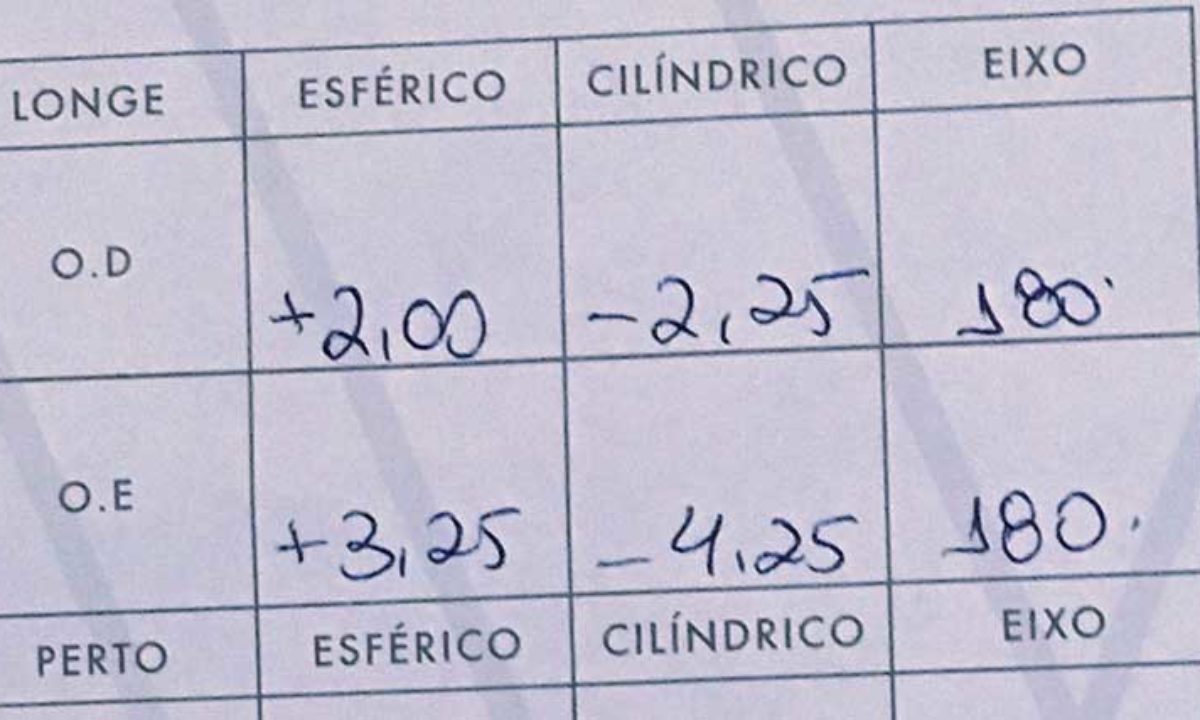 LONGE ESFÉRICO CILÍNDRICO EIXO
O.D +2,00 -2,25 180.
O.E +3,25 -4,25 180.
PERTO ESFÉRICO CILÍNDRICO EIXO